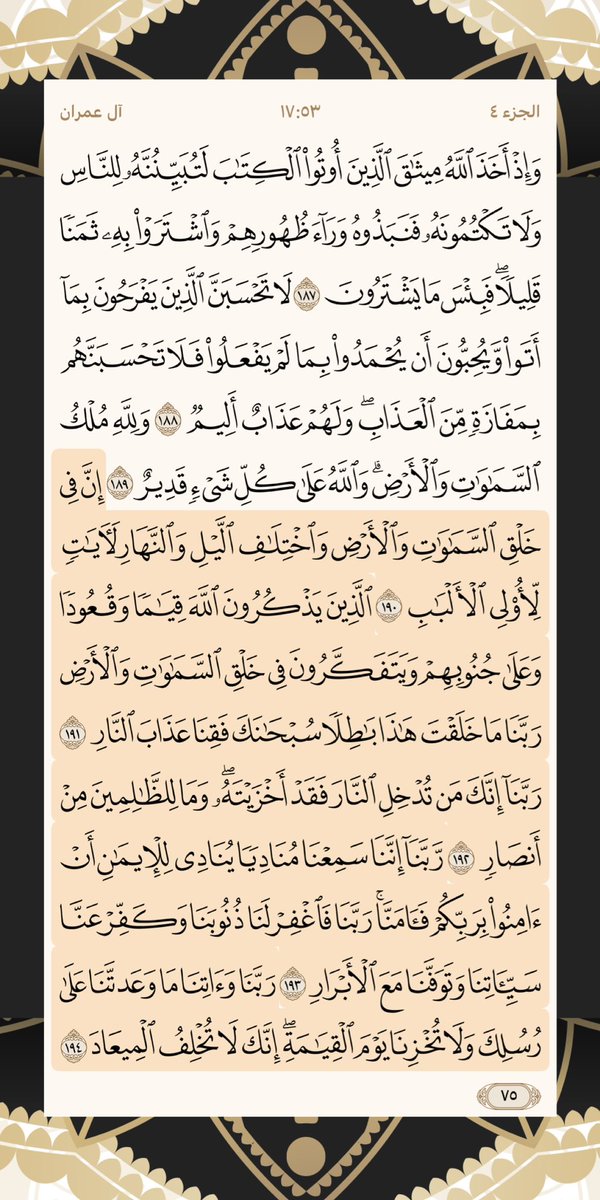 الجزء ٤ ١٧:٥٣ آل عمران
وَإِذْ أَخَذَ ٱللَّهُ مِيثَٰقَ ٱلَّذِينَ أُوتُوا۟ ٱلْكِتَٰبَ لَتُبَيِّنُنَّهُۥ لِلنَّاسِ
وَلَا تَكْتُمُونَهُۥ فَنَبَذُوهُ وَرَآءَ ظُهُورِهِمْ وَٱشْتَرَوْا۟ بِهِۦ ثَمَنًا
قَلِيلًا ۖ فَبِئْسَ مَا يَشْتَرُونَ ١٨٧ لَا تَحْسَبَنَّ ٱلَّذِينَ يَفْرَحُونَ بِمَآ
أَتَوا۟ وَّيُحِبُّونَ أَن يُحْمَدُوا۟ بِمَا لَمْ يَفْعَلُوا۟ فَلَا تَحْسَبَنَّهُم
بِمَفَازَةٍ مِّنَ ٱلْعَذَابِ ۖ وَلَهُمْ عَذَابٌ أَلِيمٌ ١٨٨ وَلِلَّهِ مُلْكُ
ٱلسَّمَٰوَٰتِ وَٱلْأَرْضِ ۗ وَٱللَّهُ عَلَىٰ كُلِّ شَىْءٍ قَدِيرٌ ١٨٩ إِنَّ فِى
خَلْقِ ٱلسَّمَٰوَٰتِ وَٱلْأَرْضِ وَٱخْتِلَٰفِ ٱلَّيْلِ وَٱلنَّهَارِ لَـَٔايَٰتٍ
لِّأُو۟لِى ٱلْأَلْبَٰبِ ١٩٠ ٱلَّذِينَ يَذْكُرُونَ ٱللَّهَ قِيَٰمًا وَقُعُودًا
وَعَلَىٰ جُنُوبِهِمْ وَيَتَفَكَّرُونَ فِى خَلْقِ ٱلسَّمَٰوَٰتِ وَٱلْأَرْضِ
رَبَّنَا مَا خَلَقْتَ هَٰذَا بَٰطِلًا سُبْحَٰنَكَ فَقِنَا عَذَابَ ٱلنَّارِ ١٩١
رَبَّنَآ إِنَّكَ مَن تُدْخِلِ ٱلنَّارَ فَقَدْ أَخْزَيْتَهُۥ ۖ وَمَا لِلظَّٰلِمِينَ مِنْ
أَنصَارٍ ١٩٢ رَّبَّنَآ إِنَّنَا سَمِعْنَا مُنَادِيًا يُنَادِى لِلْإِيمَٰنِ أَنْ
ءَامِنُوا۟ بِرَبِّكُمْ فَـَٔامَنَّا ۚ رَبَّنَا فَٱغْفِرْ لَنَا ذُنُوبَنَا وَكَفِّرْ عَنَّا
سَيِّـَٔاتِنَا وَتَوَفَّنَا مَعَ ٱلْأَبْرَارِ ١٩٣ رَبَّنَا وَءَاتِنَا مَا وَعَدتَّنَا عَلَىٰ
رُسُلِكَ وَلَا تُخْزِنَا يَوْمَ ٱلْقِيَٰمَةِ ۖ إِنَّكَ لَا تُخْلِفُ ٱلْمِيعَادَ ١٩٤
٧٥